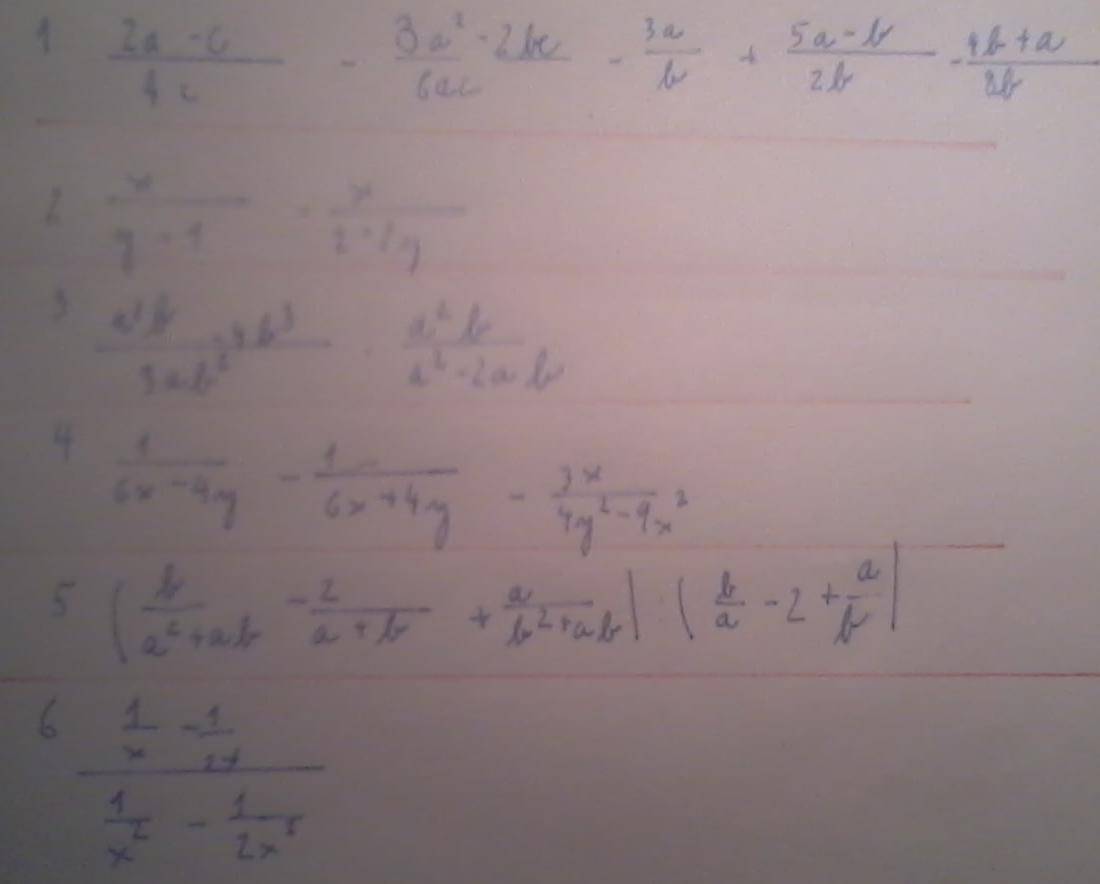 1 (2a - c)/(4c) - (3a² - 2bc)/(6ac) - 3a/b + (5a - b)/(2b) - (4b + a)/(8b)
2 x/(y - 1) - x/(2 - 2y)
3 a²b/(3ab² - 4b³) · a²b/(a² - 2ab)
4 1/(6x - 4y) - 1/(6x + 4y) - 3x/(4y² - 9x²)
5 (b/(a² + ab) - 2/(a + b) + a/(b² + ab)) : (b/a - 2 + a/b)
6 (1/x - 1/2x)/(1/x² - 1/2x²)